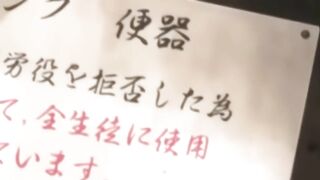 便器
労役を拒否した為
て、全生徒に使用
ています。